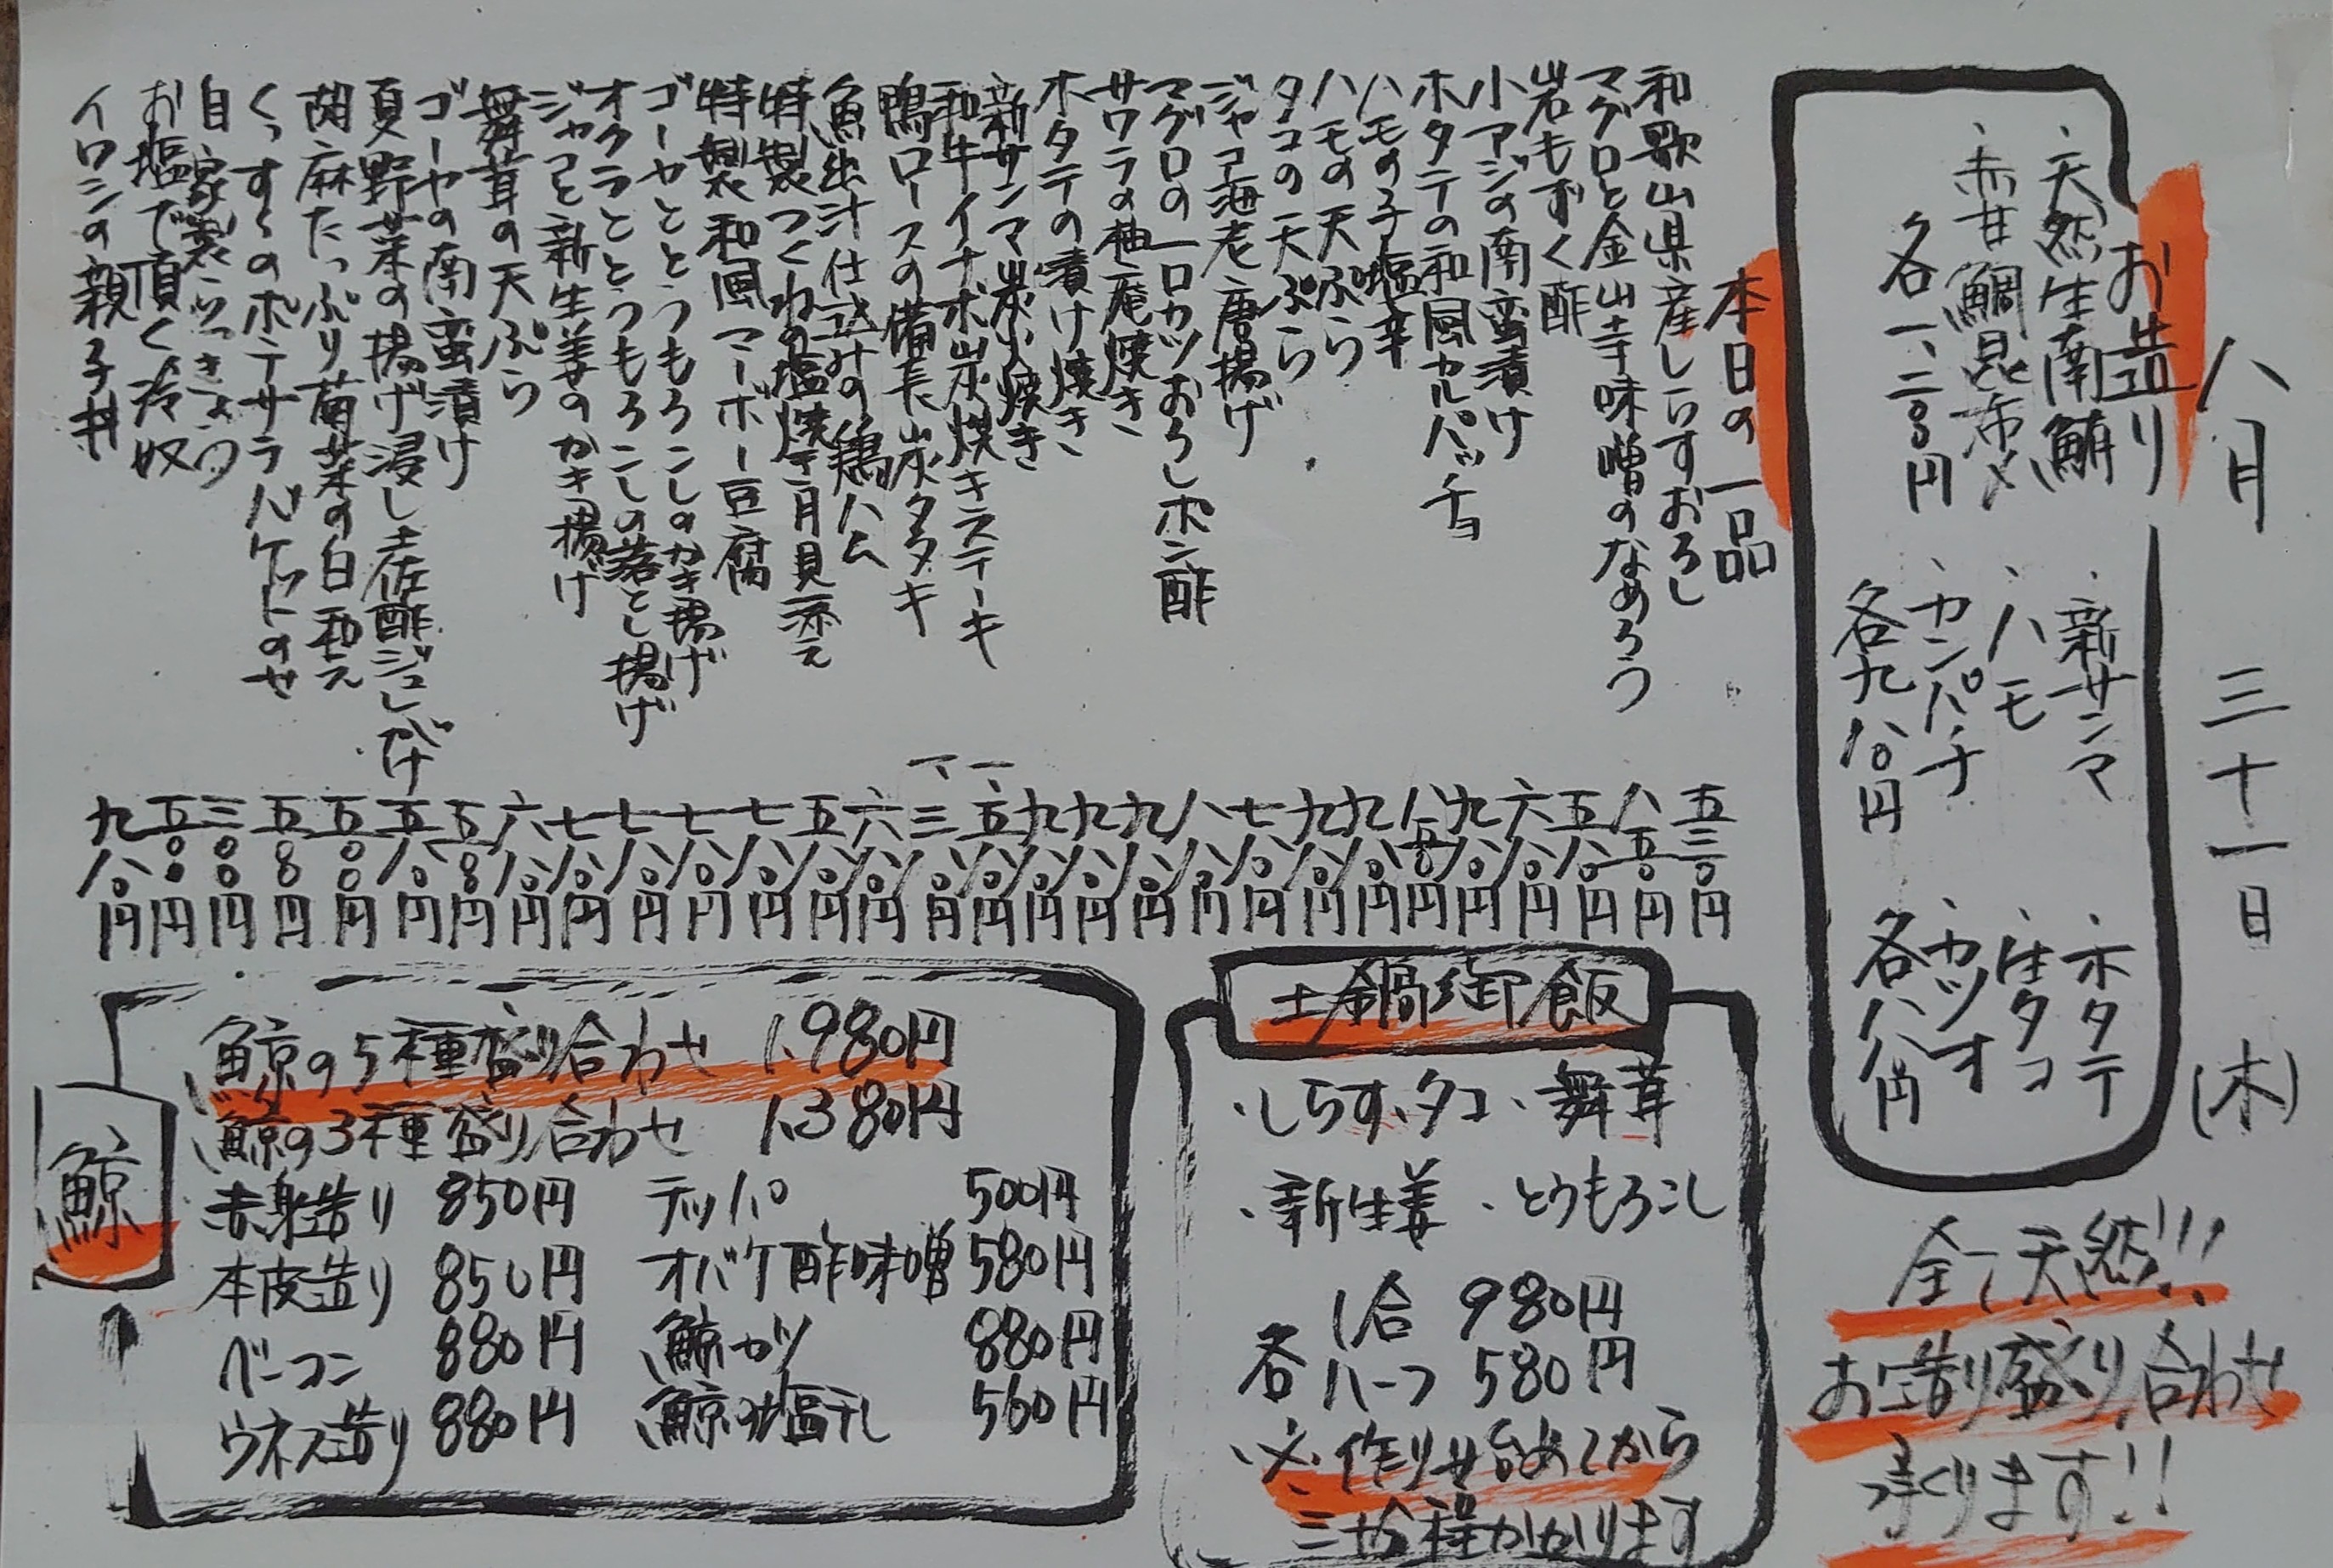 八月 三十一日 (木)
お造り
・天然生南鮪
・赤甘鯛昆布〆
各一、二〇〇円
・新サンマ
・ハモ
・カンパチ
各九八〇円
・ホタテ
・生タコ
・カツオ
各八八〇円
全て天然!!!
お造り盛り合わせ
承ります!!
本日の一品
和歌山県産しらすおろし 五三〇円
マグロと金山寺味噌のなめろう 八五〇円
岩もずく酢 五八〇円
小アジの南蛮漬け 六八〇円
ホタテの和風カルパッチョ 九八〇円
ハモの子塩辛 八五〇円
ハモの天ぷら 九八〇円
タコの天ぷら 九八〇円
ジャコ海老唐揚げ 七八〇円
マグロの一口カツおろしポン酢 八八〇円
サワラの柚庵焼き 九八〇円
ホタテの漬け焼き 九八〇円
新サンマ炭火焼き 九八〇円
和牛イチボ炭焼きステーキ 一、五八〇円
鴨ロースの備長炭タタキ 一、三八〇円
魚出汁仕込みの鶏ハム 六八〇円
特製つくねの塩焼き月見添え 五八〇円
特製和風マーボー豆腐 七八〇円
ゴーヤととうもろこしのかき揚げ 七八〇円
オクラととうもろこしの落とし揚げ 七八〇円
ジャコと新生姜のかき揚げ 七八〇円
舞茸の天ぷら 六八〇円
ゴーヤの南蛮漬け 五〇〇円
夏野菜の揚げ浸し土佐酢ジュレがけ 五八〇円
胡麻たっぷり菊菜の白和え 五〇〇円
くっすくのポテサラバケットのせ 五〇〇円
自家製らっきょう 三〇〇円
お塩で頂く冷奴 五〇〇円
イワシの親子丼 九八〇円
土鍋御飯
・しらす・タコ・舞茸
・新生姜・とうもろこし
各 1合 980円
ハーフ 580円
※作り始めてから
三十分程かかります
鯨
鯨の5種盛り合わせ 1,980円
鯨の3種盛り合わせ 1,380円
赤身造り 850円 テッパ 500円
本皮造り 850円 オバケ酢味噌 580円
ベーコン 880円 鯨カツ 880円
ウネス造り 880円 鯨の塩干し 560円